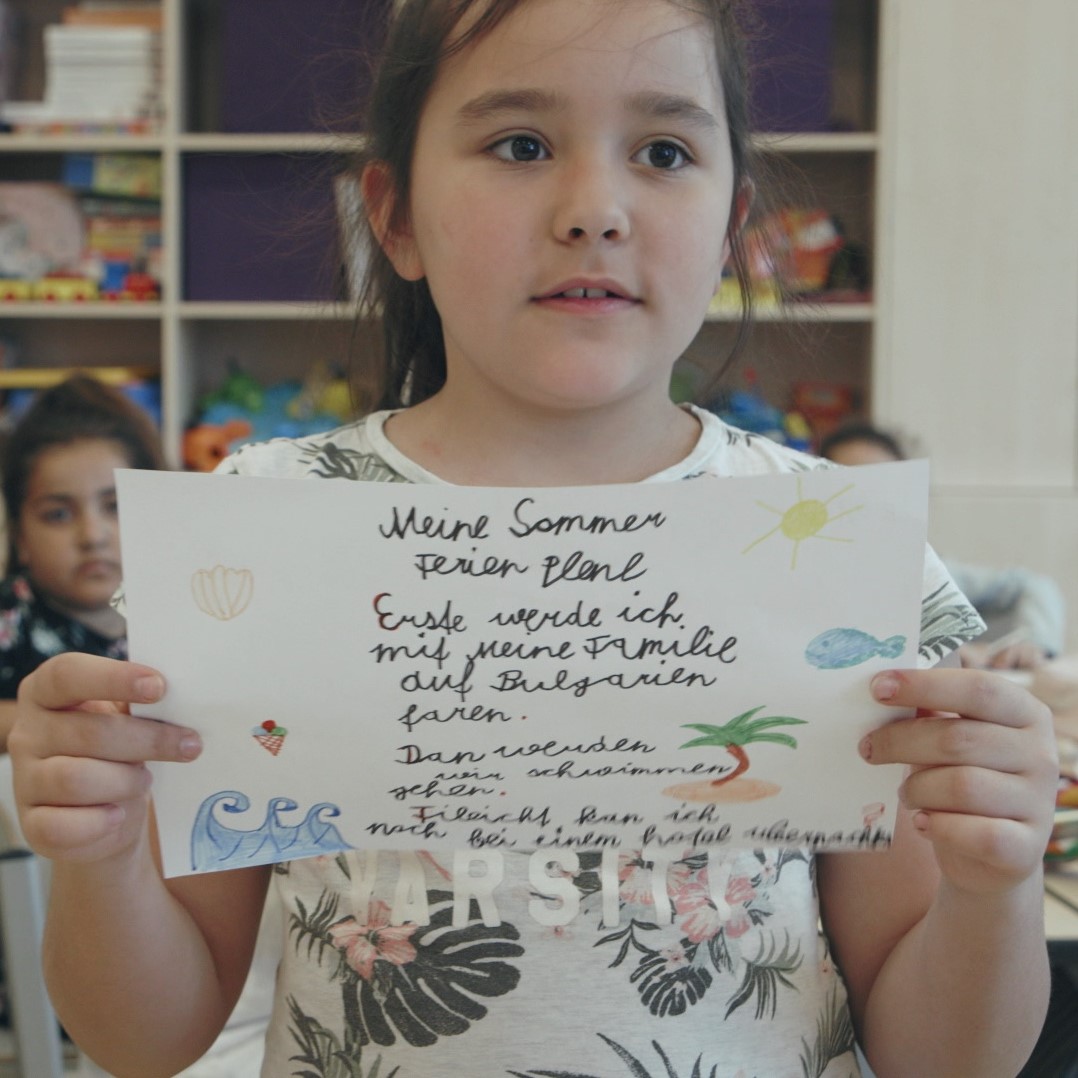 Meine Sommer
Ferien Plenl
Erste werde ich
mit Meine Familie
auf Bulgarien
faren.
Dan werden
wir schwimmen
gehen.
Fileicht kan ich
noch bei einem hodal übernachten
VARSITY